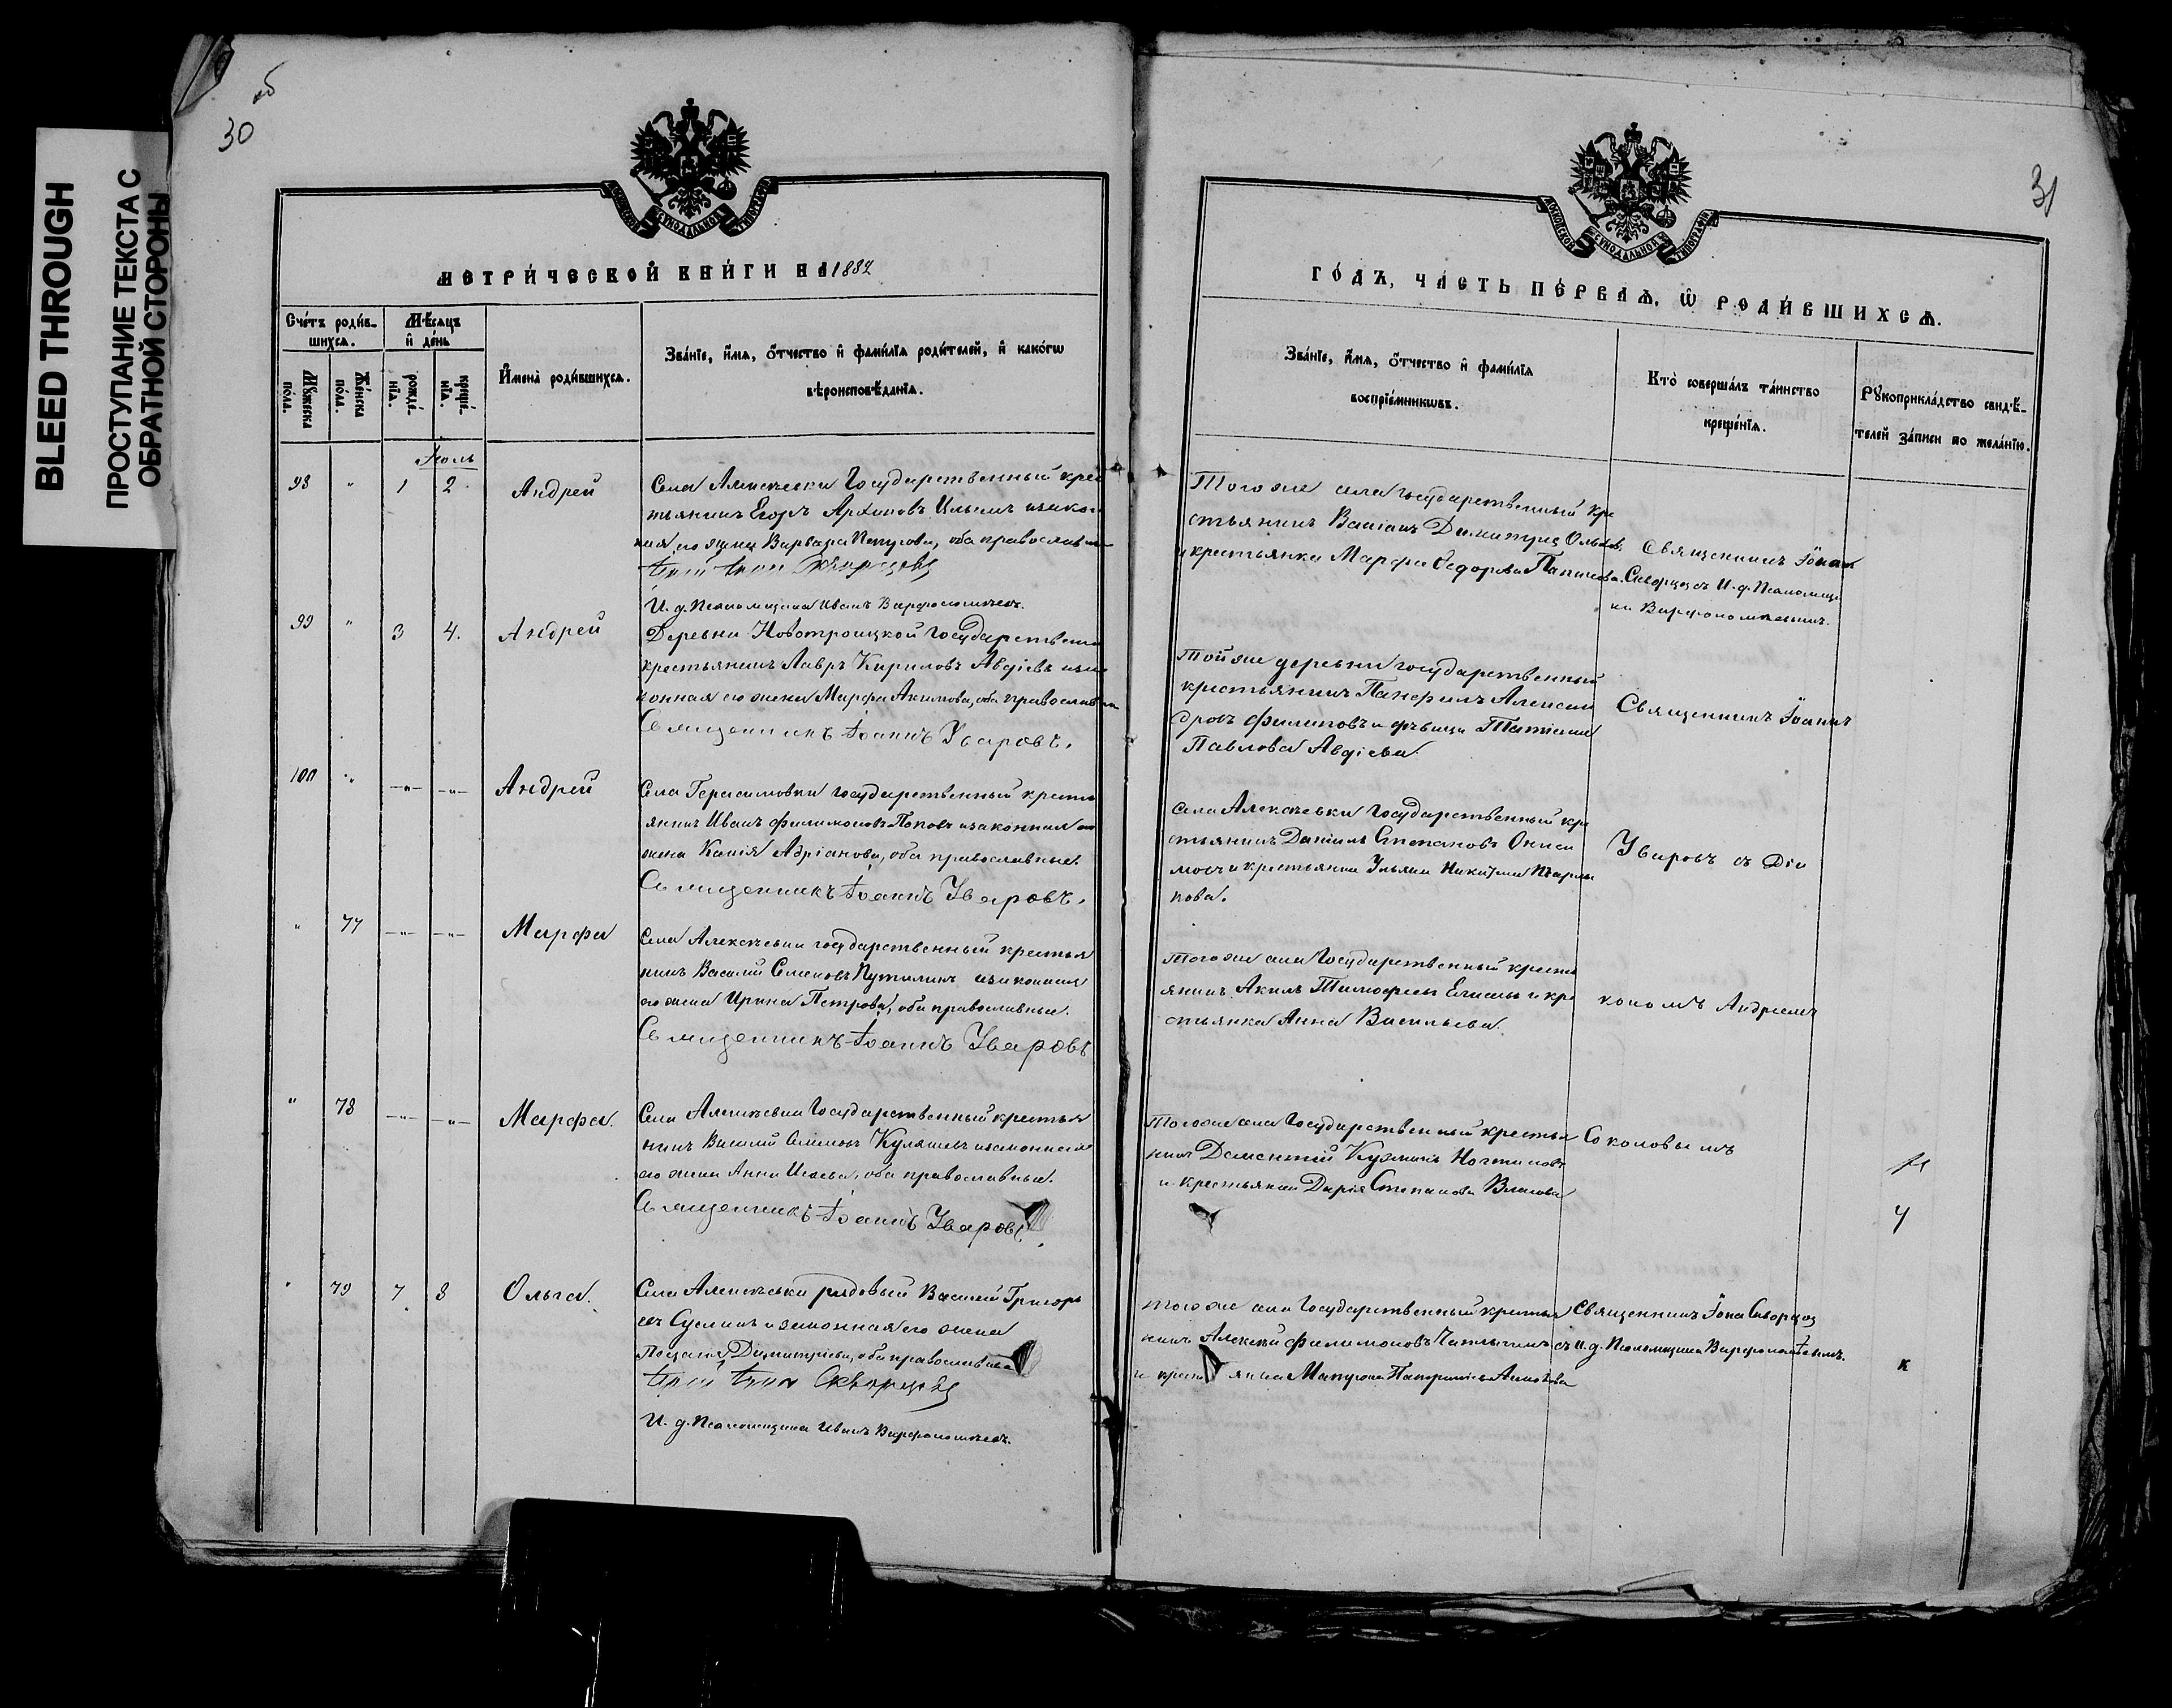 BLEED THROUGH
ПРОСТУПАНИЕ ТЕКСТА С
ОБРАТНОЙ СТОРОНЫ
об
30
МОСКОВСКОЙ СѴНОДАЛЬНОЙ ТИПОГРАФІИ
МЕТРИ́ЧЕСКОЙ КНИ́ГИ НА 1882
Сче́тъ роди́в-
шихсѧ.
Мꙋ́жеска
по́ла.
Же́нска
по́ла.
Мѣ́сѧцъ
и҆ де́нь
рожде́-
нїѧ.
креще́-
нїѧ.
И҆мена̀ роди́вшихсѧ.
Зва́нїе, и҆́мѧ, ѻ҆́тчество и҆ фами́лїѧ роди́телей, и҆ како́гѡ
вѣроисповѣ́данїѧ.
Іюль
98 " 1 2 Андрей
Села Алексѣевки Государственный крес
тьянинъ Егоръ Архиповъ
его жена Варвара оба православн
Іона Скворцовъ
И. д. Псаломщика Иванъ Варфоломѣевъ.
99 " 3 4. Андрей
Деревни Новотроицкой Государственн
крестьянинъ Лавръ Кириловъ Авдіевъ изак
онная его жена Марфа Акимова, оба православн
Священникъ Іоаннъ Уваровъ.
100 " —"— —"— Андрей
Села Герасимовки Государственный кресть
янинъ Иванъ Филимоновъ Поповъ изаконная его
жена Адріанова, оба православные.
Священникъ Іоаннъ Уваровъ.
" 77 —"— —"— Марфа
Села Алексѣевки государственный крестья
нинъ Василій Семеновъ Путилинъ изаконная
его жена Ирина Петрова, оба православные.
Священникъ Іоаннъ Уваровъ
" 78 —"— —"— Марфа.
Села Алексѣевки Государственный крестья
нинъ Василій изаконная
его жена Анна оба православные.
Священникъ Іоаннъ Уваровъ.
" 79 7 8 Ольга.
Села Алексѣевки рядовый Василій Григорь
евъ Суслинъ и законная его жена
Пелагія Димитріева, оба православные
Іона Скворцовъ
И. д. Псаломщика Иванъ Варфоломѣевъ.
31
МОСКОВСКОЙ СѴНОДАЛЬНОЙ ТИПОГРАФІИ
ГО́ДЪ, ЧА́СТЬ ПЕ́РВАѦ, Ѡ҆ РОДИ́ВШИХСѦ.
Зва́нїе, и҆́мѧ, ѻ҆́тчество и҆ фами́лїѧ
воспрїе́мникѡвъ.
Кто̀ соверша́лъ та́инство
креще́нїѧ.
Рꙋкоприкла́дство свидѣ́-
телей за́писи по жела́нїю.
Того же села государственный кре
стьянинъ
и крестьянка Марфа Федорова
Священникъ Іона
Скворцовъ съ И. д. Псаломщи
ка Варфоломѣевымъ.
Той же деревни государственный
крестьянинъ Панфилъ Алексан
дровъ Филиповъ и дѣвица Татіана
Павлова Авдіева.
Священникъ Іоаннъ
Села Алексѣевки Государственный кре
стьянинъ Даніилъ СтепановъОниси
мовъ и крестьянка Ульяна Никитина
пова.
Уваровъ съ Діа
Того же села Государственный кресть
янинъ Акимъ Тимофеевъ и кре
стьянка Анна Васильева.
кономъ Андреемъ
Того же села Государственный крестья
нинъ Дементій Кузминъ
и крестьянка Дарія Степанова Власова
Соколовымъ
Того же села Государственный крестья
нинъ Алексѣй Филимоновъ
и кресть янка
Священникъ Іона Скворцовъ
съ И. д. Псаломщика Варфоломѣевымъ.